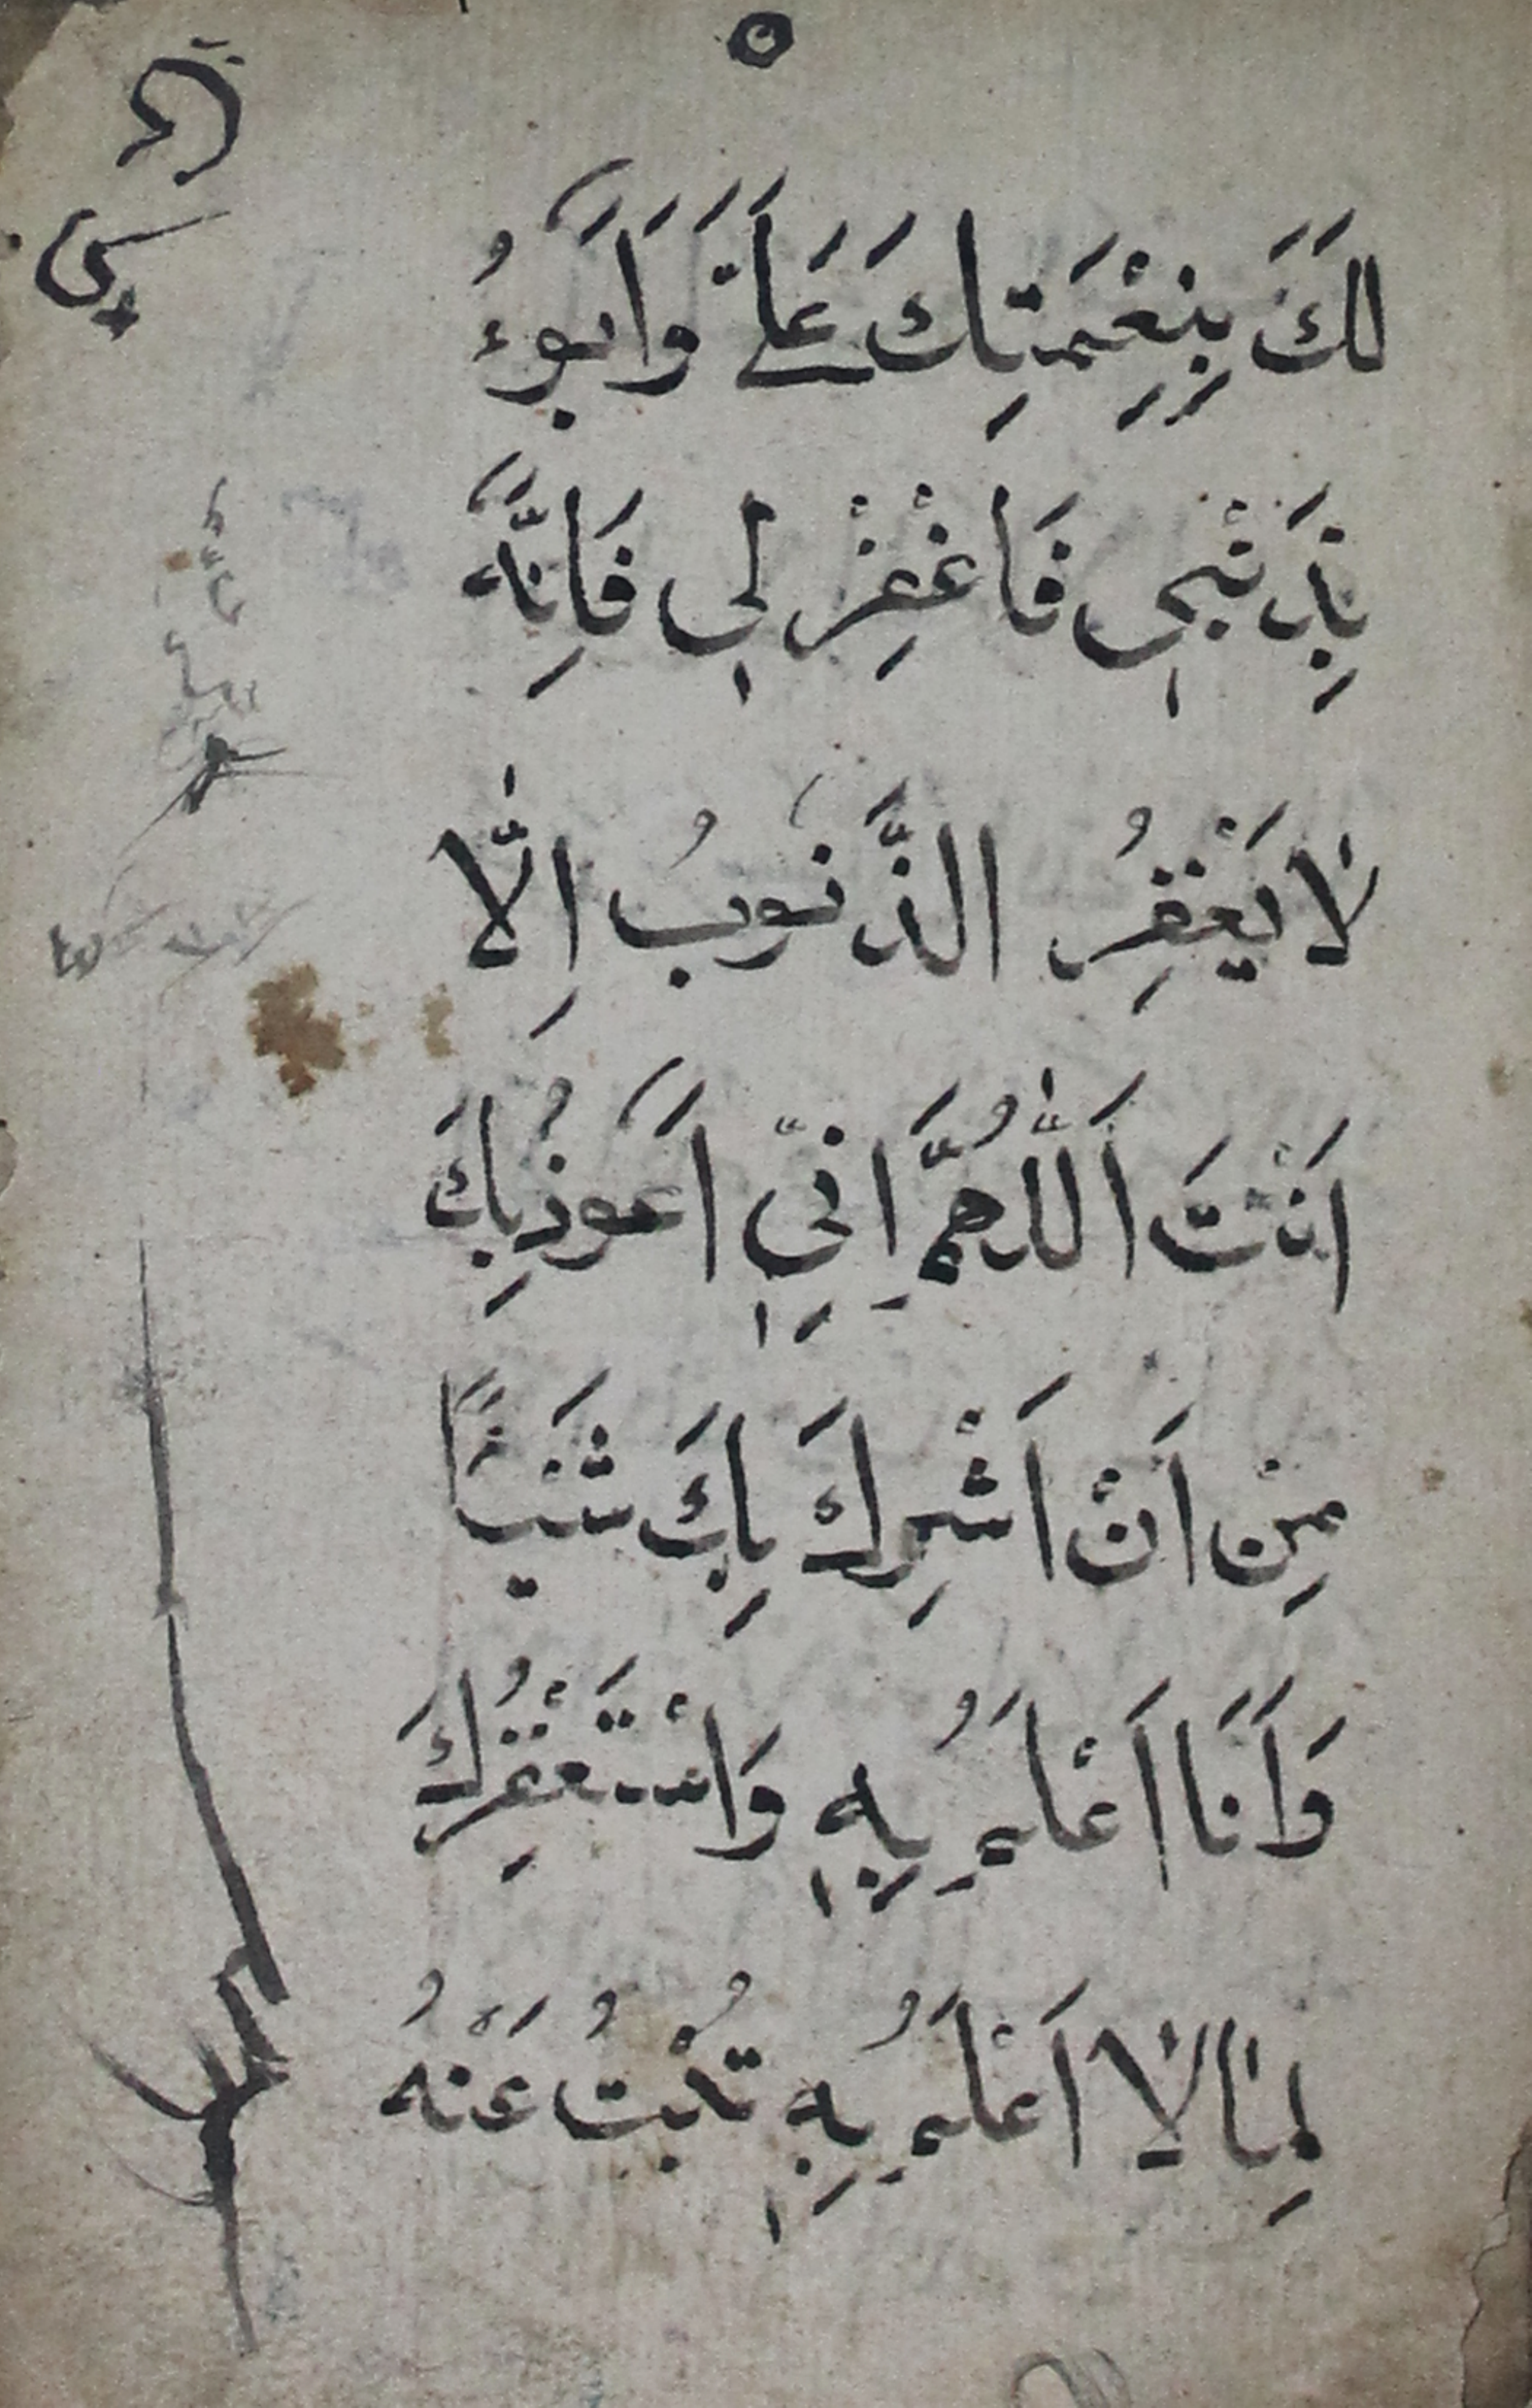 ٥
لَكَ بِنِعْمَتِكَ عَلَيَّ وَاَبُوءُ
بِذَنْبِي فَاغْفِرْ لِي فَاِنَّهُ
لَا يَغْفِرُ الذَّنُوبُ اِلَّا
اَنْتَ اَللّٰهُمَّ اِنِّي اَعُوذُ بِكَ
مِنْ اَنْ اَشْرِكَ بِكَ شَيْئًا
وَاَنَا اَعْلَمُ بِهٖ وَاسْتَغْفِرُكَ
لِمَا لَا اَعْلَمُ بِهٖ تُبْتُ عَنْهُ